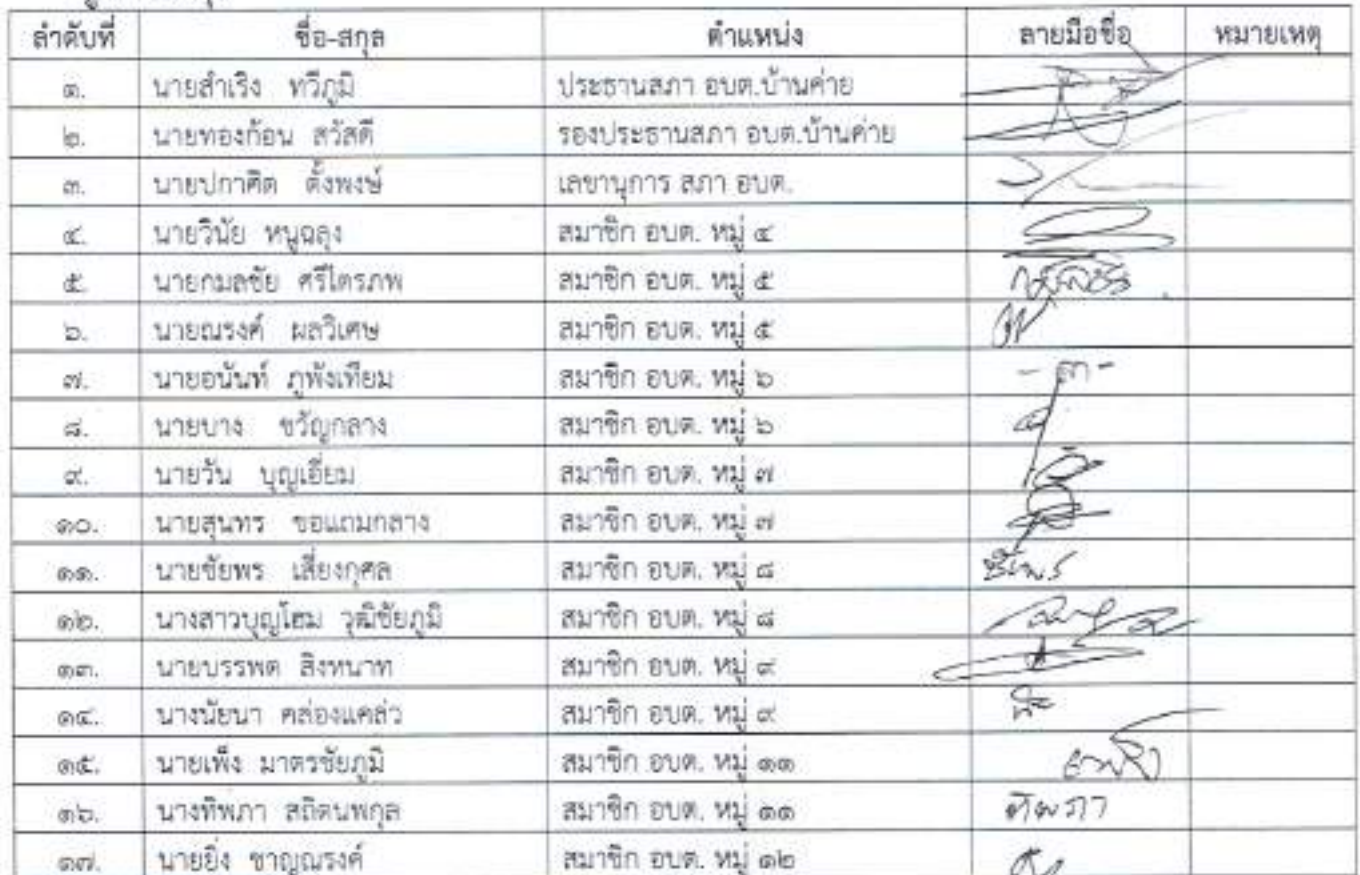 ลำดับที่ ชื่อ-สกุล ตำแหน่ง ลายมือชื่อ หมายเหตุ
๑. นายสำเริง ทวีภูมิ ประธานสภา อบต.บ้านค่าย
๒. นายทองก้อน สวัสดี รองประธานสภา อบต.บ้านค่าย
๓. นายปกาศิต ตั้งพงษ์ เลขานุการ สภา อบต.
๔. นายวินัย หนูฉลุง สมาชิก อบต. หมู่ ๔
๕. นายกมลชัย ศรีไตรภพ สมาชิก อบต. หมู่ ๕ กมลชัย
๖. นายณรงค์ ผลวิเศษ สมาชิก อบต. หมู่ ๕
๗. นายอนันท์ ภูพังเทียม สมาชิก อบต. หมู่ ๖ - ลา -
๘. นายบาง ขวัญกลาง สมาชิก อบต. หมู่ ๖
๙. นายวัน บุญเอี่ยม สมาชิก อบต. หมู่ ๗
๑๐. นายสุนทร ขอแถมกลาง สมาชิก อบต. หมู่ ๗
๑๑. นายชัยพร เสี่ยงกุศล สมาชิก อบต. หมู่ ๘ ชัยพร
๑๒. นางสาวบุญโฮม วุฒิชัยภูมิ สมาชิก อบต. หมู่ ๘
๑๓. นายบรรพต สิงหนาท สมาชิก อบต. หมู่ ๙
๑๔. นางนัยนา คล่องแคล่ว สมาชิก อบต. หมู่ ๙
๑๕. นายเพ็ง มาตรชัยภูมิ สมาชิก อบต. หมู่ ๑๑
๑๖. นางทิพภา สถิตนพกุล สมาชิก อบต. หมู่ ๑๑ ทิพภา
๑๗. นายยิ่ง ชาญณรงค์ สมาชิก อบต. หมู่ ๑๒